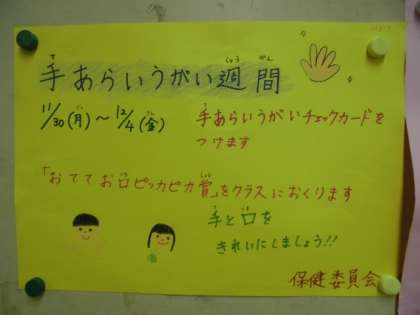 手あらいうがい週間
11/30(月)～12/4(金)
手あらいうがいチェックカードを
つけます
「おててお口ピッカピカ賞」をクラスにおくります
手と口を
きれいにしましょう!!
保健委員会